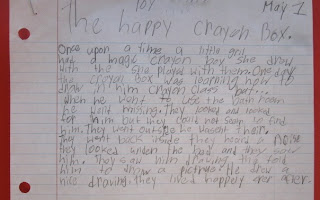 for
May 1
The happy Crayon Box.
Once upon a time a little girl
had a magic crayon box she draw
with the she played with them. One day
the crayon box was learning how to
draw in him crayon class but...
when he went to use the bath room
he went missing. They looked and looked
for him but they could not seem to find
him. They went outside he wasent their.
They went back inside they heard a noise
they looked under the bed and they saw
him. They saw him drawing. They told
him to draw a picture. He drew a
nice drawing. They lived happily ever after.